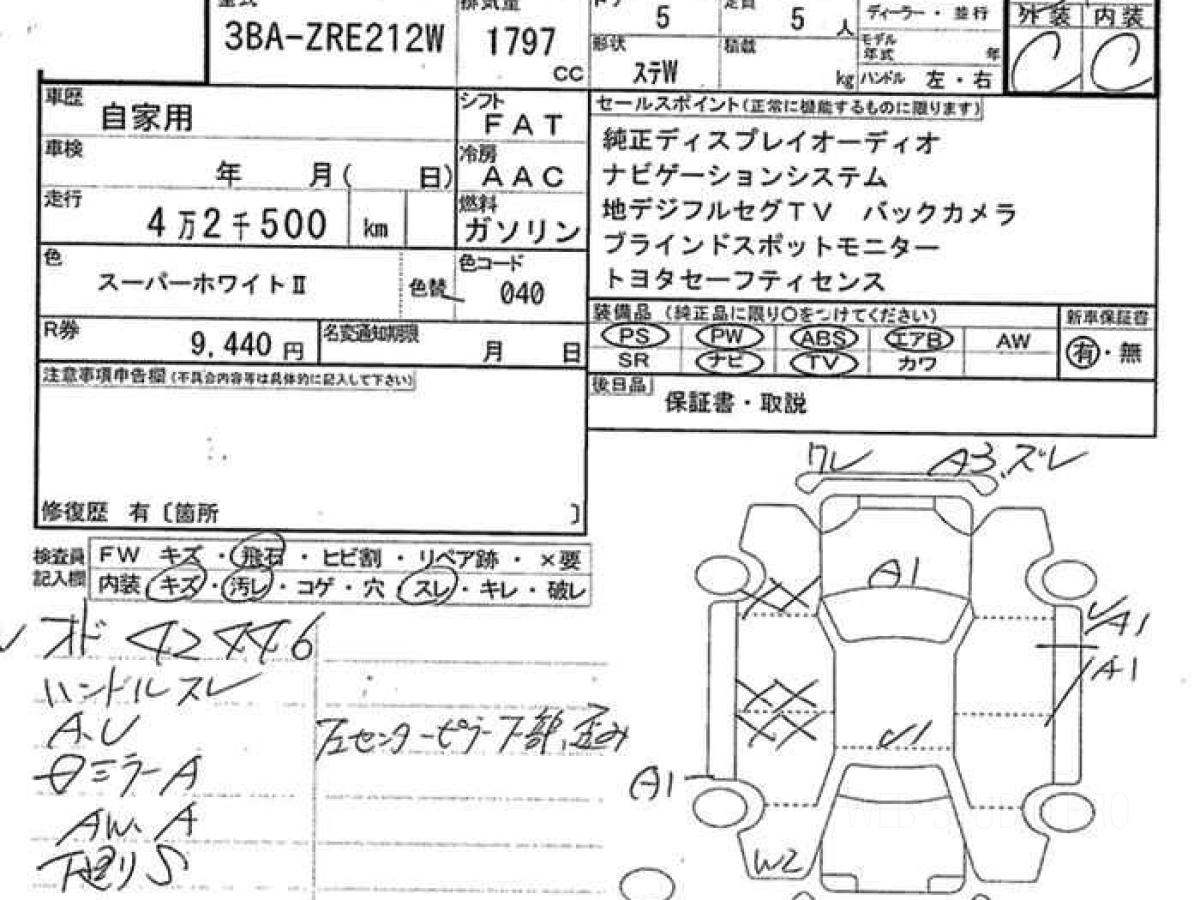 型式 排気量 ドア 5 定員 5 人 ディーラー・並行 外装 内装
3BA-ZRE212W 1797 CC 形状 ステW 積載 kg モデル年式 年 ハンドル 左・右 C C
車歴 自家用 シフト FAT
車検 年 月( 日) 冷房 AAC
走行 4万2千500 km 燃料 ガソリン
色 スーパーホワイトⅡ 色替 色コード 040
R券 9,440 円 名変通知期限 月 日
注意事項申告欄(不具合内容等は具体的に記入して下さい)
修復歴 有〔箇所 〕
セールスポイント(正常に機能するものに限ります)
純正ディスプレイオーディオ
ナビゲーションシステム
地デジフルセグTV バックカメラ
ブラインドスポットモニター
トヨタセーフティセンス
装備品 (純正品に限り○をつけてください) 新車保証書
PS PW ABS エアB AW 有・無
SR ナビ TV カワ
後日品 保証書・取説
検査員記入欄 FW キズ・飛石・ヒビ割・リペア跡・×要
内装 キズ・汚レ・コゲ・穴・スレ・キレ・破レ
オド 42446
ハンドルスレ
A.U
ミラーA
AW.A
下廻りS
センターピラー下部、歪み
ワレ A3.ズレ
A1
XX
A1
A1
XX
XX
A1
W2